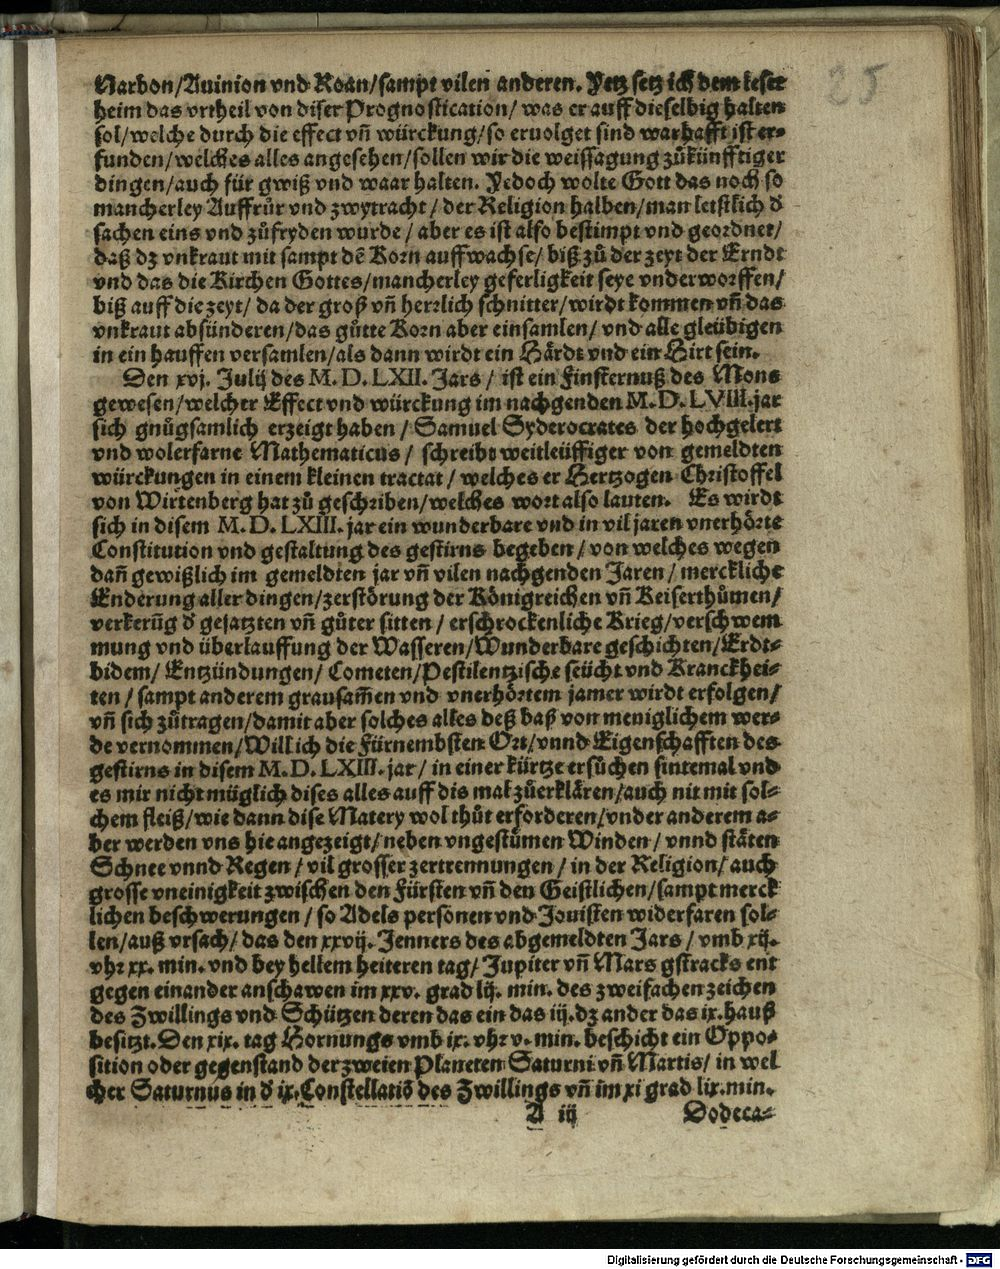 25
Narbon/Auinion vnd Roan/sampt vilen anderen. Yetz setz ich dem leser
heim das vrtheil von diser Prognostication/ was er auff dieselbig halten
sol/welche durch die effect vñ würckung/so eruolget sind warhafft ist er-
funden/welches alles angesehen/sollen wir die weissagung zůkünfftiger
dingen/auch für gwiß vnd waar halten. Yedoch wolte Gott das noch so
mancherley Auffrůr vnd zwytracht/ der Religion halben/man letstlich d̕
sachen eins vnd zůfryden wurde/ aber es ist also bestimpt vnd geordnet/
daß dz vnkraut mit sampt dẽ Korn auffwachse/ biß zů der zeyt der Erndt
vnd das die Kirchen Gottes/mancherley geferligkeit seye vnderworffen/
biß auff die zeyt/ da der groß vñ herrlich schnitter/wirdt kommen vñ das
vnkraut absünderen/das gůtte Korn aber einsamlen/ vnd alle gleübigen
in ein hauffen versamlen/als dann wirdt ein Härdt vnd ein Hirt sein.
Den xvj. Julij des M. D. LXII. Jars/ ist ein Finsternuß des Mons
gewesen/welcher Effect vnd würckung im nachgenden M. D. LVIII. jar
sich gnůgsamlich erzeigt haben/ Samuel Syderocrates der hochgelert
vnd wolerfarne Mathematicus/ schreibt weitleüffiger von gemeldten
würckungen in einem kleinen tractat/ welches er Hertzogen Christoffel
von Wirtenberg hat zů geschriben/welches wort also lauten. Es wirdt
sich in disem M. D. LXIII. jar ein wunderbare vnd in vil jaren vnerhörte
Constitution vnd gestaltung des gestirns begeben/ von welches wegen
dañ gewißlich im gemeldten jar vñ vilen nachgenden Jaren/ merckliche
Enderung aller dingen/zerstörung der Königreichen vñ Keiserthůmen/
verkerũg d̕ gesatzten vñ gůter sitten/ erschrockenliche Krieg/verschwem
mung vnd überlauffung der Wasseren/Wunderbare geschichten/Erdt-
bidem/ Entzündungen/ Cometen/Pestilentzische seücht vnd Kranckhei-
ten/ sampt anderem grausam̃en vnd vnerhörtem jamer wirdt erfolgen/
vñ sich zůtragen/damit aber solches alles deß baß von meniglichem wer-
de vernommen/Will ich die Fürnembsten Ort/vnnd Eigenschafften des
gestirns in disem M. D. LXIII. jar/ in einer kürtze ersůchen sintemal vnd
es mir nicht müglich dises alles auff dis mal zůerklären/auch nit mit sol-
chem fleiß/wie dann dise Matery wol thůt erforderen/vnder anderem a-
ber werden vns hie angezeigt/neben vngestümen Winden/ vnnd stäten
Schnee vnnd Regen/ vil grosser zertrennungen/ in der Religion/ auch
grosse vneinigkeit zwischen den Fürsten vñ den Geistlichen/sampt merck
lichen beschwerungen/ so Adels personen vnd Jouisten widerfaren sol-
len/auß vrsach/ das den xxvij. Jenners des abgemeldten Jars/ vmb xij.
vhr xx. min. vnd bey hellem heiteren tag/ Jupiter vñ Mars gstracks ent
gegen einander anschawen im xxv. grad lij. min. des zweifachen zeichen
des Zwillings vnd Schützen deren das ein das iij. dz ander das ix. hauß
besitzt. Den xix. tag Hornungs vmb ix. vhr v. min. beschicht ein Oppo-
sition oder gegenstand der zweien Planeten Saturni vñ Martis/ in wel
cher Saturnus in d̕ ix. Constellatiõ des Zwillings vñ im xi grad lix. min.
A iij Dodeca-
Digitalisierung gefördert durch die Deutsche Forschungsgemeinschaft - DFG